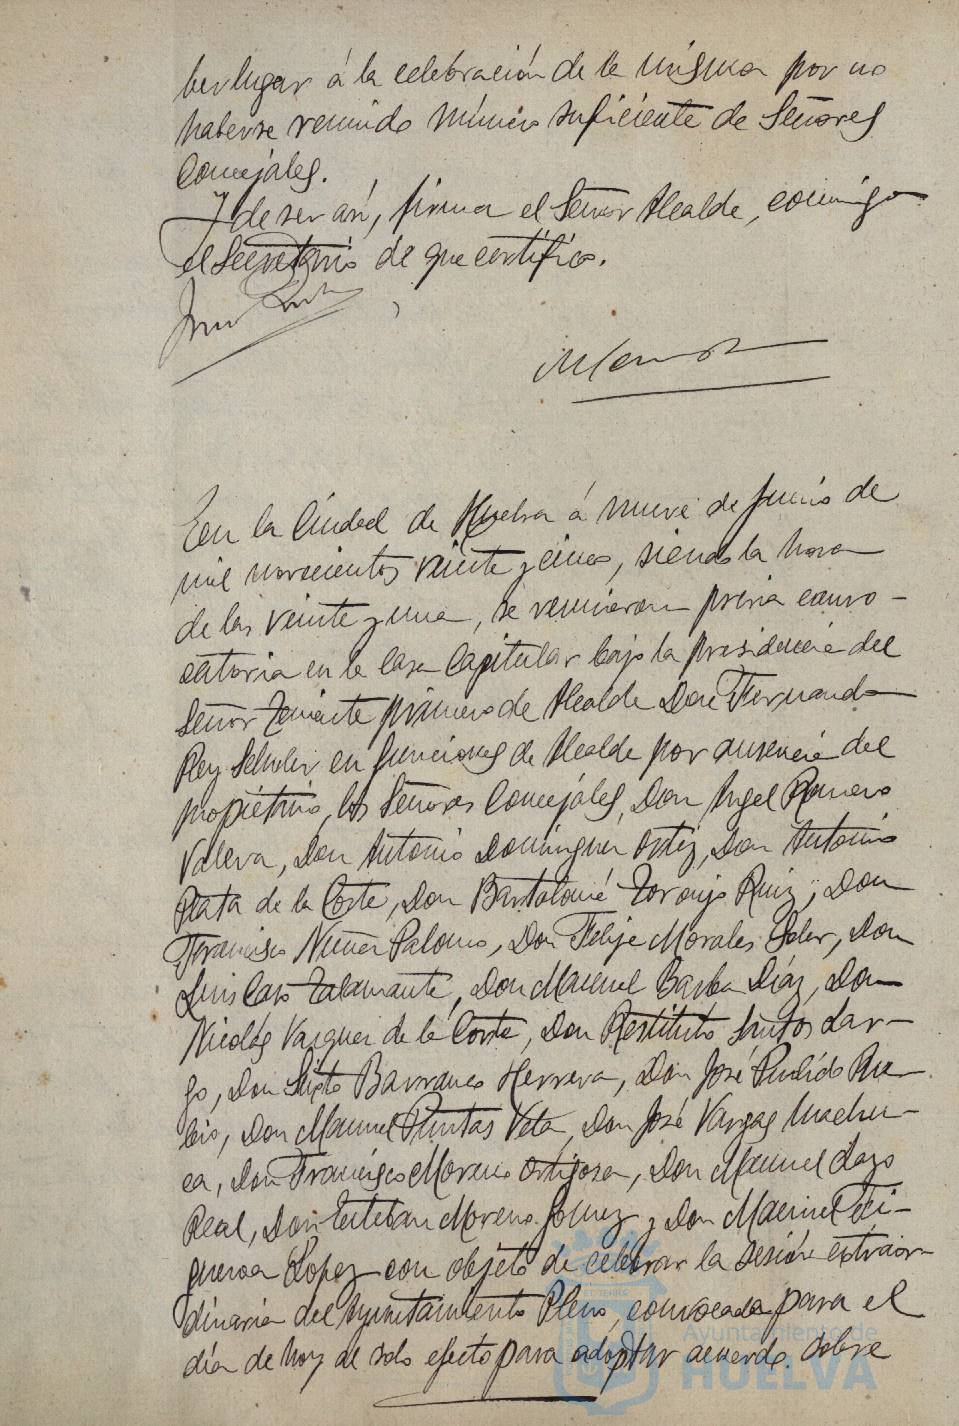 ber lugar á la celebración de la misma por no
haberse reunido número suficiente de Señores
Concejales.
Y de ser asi, firma el Señor Alcalde, conmigo
el Secretario de que certifico.
En la Ciudad de Huelva á nueve de Junio de
mil novecientos veinte y cinco, siendo la hora
de las veinte y una, se reunieron previa convo-
catoria en la Casa Capitular bajo la presidencia del
Señor Teniente primero de Alcalde Don Fernando
Rey Schuler en funciones de Alcalde por ausencia del
propietario, los Señores Concejales, Don Angel Romero
Valera, Don Antonio Dominguez Ortiz, Don Antonio
Plata de la Corte, Don Bartolomé Toronjo Ruiz, Don
Francisco Nuñez Palomo, Don Felipe Morales Soler, Don
Luis Caso Talamante, Don Manuel Barba Díaz, Don
Nicolás Vazquez de la Corte, Don Restituto Santos Lar-
go, Don Sixto Barranco Herrera, Don José Pulido Ru-
bio, Don Manuel Puntas Vela, Don José Vargas Machu-
ca, Don Francisco Moreno Ortigosa, Don Manuel Lazo
Real, Don Esteban Moreno Gomez y Don Manuel Fi-
gueroa Lopez con objeto de celebrar la sesión extraor-
dinaria del Ayuntamiento Pleno, convocada para el
día de hoy al solo efecto para adoptar acuerdo sobre
Ayuntamiento de
HUELVA